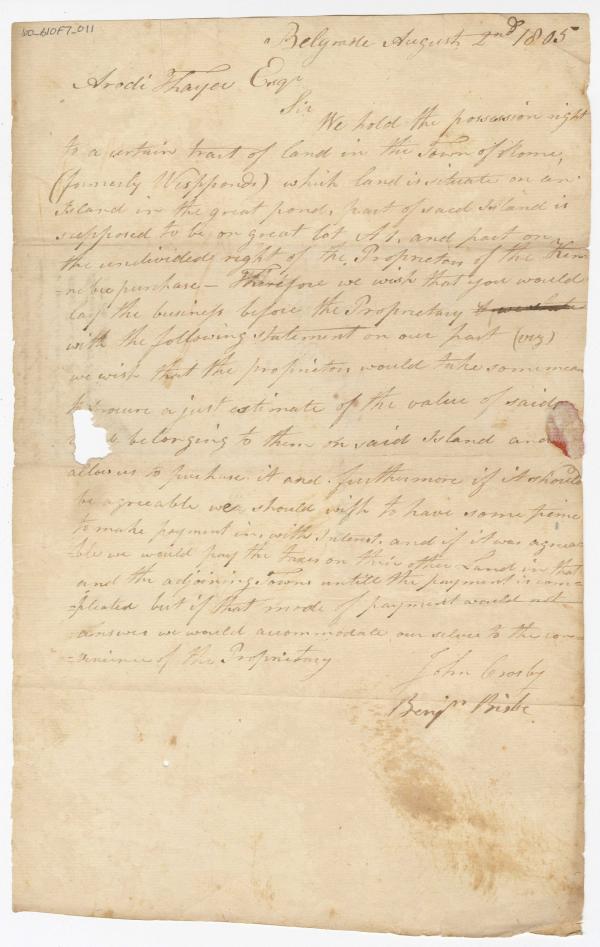 Belgrade August 2nd 1805
Arodi Thayer Esqr
Sir
We hold the possession right
to a certain tract of land in the Town of Rome,
(formerly Wespponds) which land is situate on an
Island in the great pond, part of said Island is
supposed to be on great lot No 1, and part on
the undivided right of the Proprietors of the Ken-
-nebec purchase - Therefore we wish that you would
lay the business before the Proprietary
with the following statement on our part (viz)
we wish that the proprietors would take some mean
procure a just estimate of the value of said
belonging to them on said Island and
allow us to purchase it and furthermore if it should
be agreeable we should wish to have some time
to make payment in, with Interest, and if it was agrea-
-ble we would pay the taxes on their other Land in that
and the adjoining Towns untill the payment is com-
-pleated but if that mode of payment would not
-answer we would accommodate our selves to the con-
-venience of the Proprietary
John Crosby
Benjn